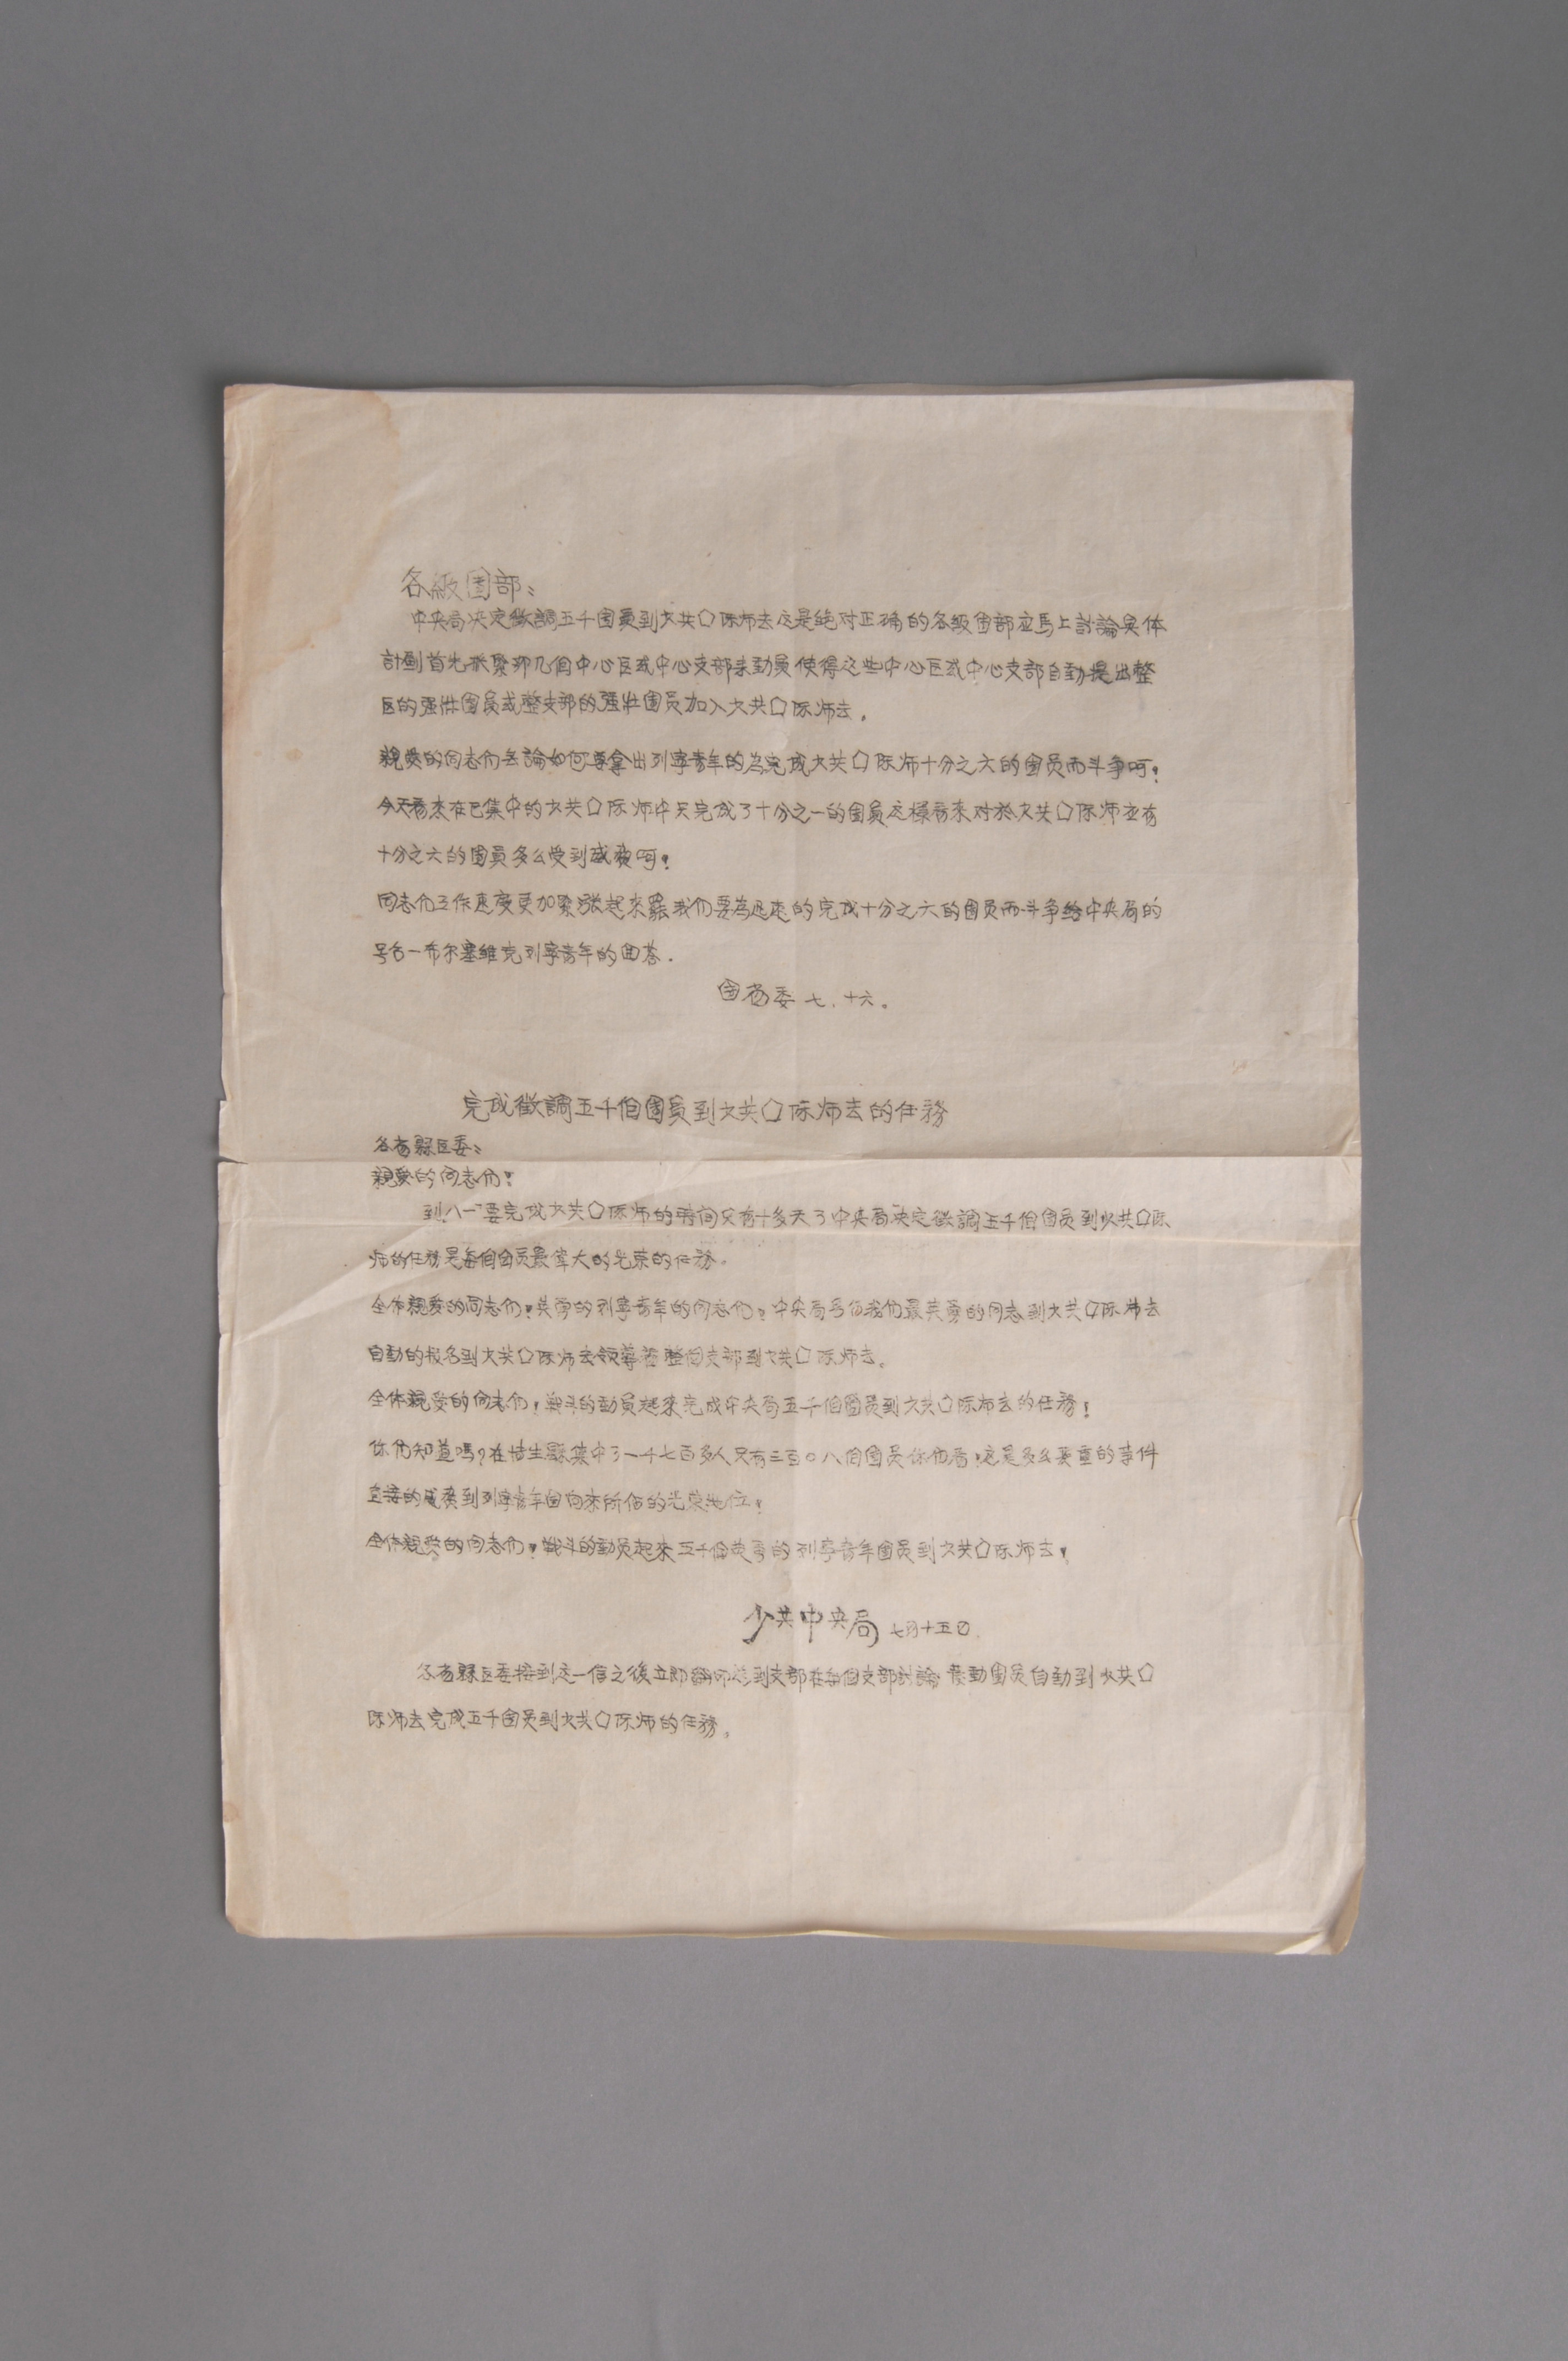 各級团部：
中央局决定徵調五千团員到少共〇际师去这是绝对正确的各級团部应馬上討論具体
計劃首先抓緊那几個中心区或中心支部来動員使得这些中心区或中心支部自動提出整
区的强壮团员或整支部的强壮团员加入少共〇际师去。
親愛的同志们无論如何要拿出列寧青年的为完成少共〇际师十分之六的团员而斗争呵！
今天看来在已集中的少共〇际师中只完成了十分之一的团員这樣看来对於少共〇际师应有
十分之六的团員多么受到威脅呵！
同志们工作速度更加緊張起来罷我们要為迅速的完成十分之六的团员而斗争给中央局的
号召一布尔塞维克列寧青年的回答．
团省委 七．十六。
完成徵調五千個团員到少共〇际师去的任務
各省縣区委：
親愛的同志们！
到八一要完成少共〇际师的時间只有十多天了中央局决定徵調五千個团员到少共〇际
师的任務是每個团员最偉大的光荣的任務。
全体親愛的同志们！英勇的列寧青年的同志们！中央局号召我们最英勇的同志到少共〇际师去
自動的报名到少共〇际师去领導着整個支部到少共〇际师去。
全体親愛的同志们！戰斗的動員起来完成中央局五千個团员到少共〇际师去的任務！
你们知道嗎？在博生縣集中了一千七百多人只有三百〇八個团员你们看！这是多么嚴重的事件
直接的威脅到列寧青年团向来所佔的光荣地位！
全体親愛的同志们！戰斗的動员起来五千個英勇的列寧青年团员到少共〇际师去！
少共中央局 七月十五日．
各省縣区委接到这一信之後立即翻印送到支部在每個支部討論發動团员自動到少共〇
际师去完成五千团员到少共〇际师的任務。